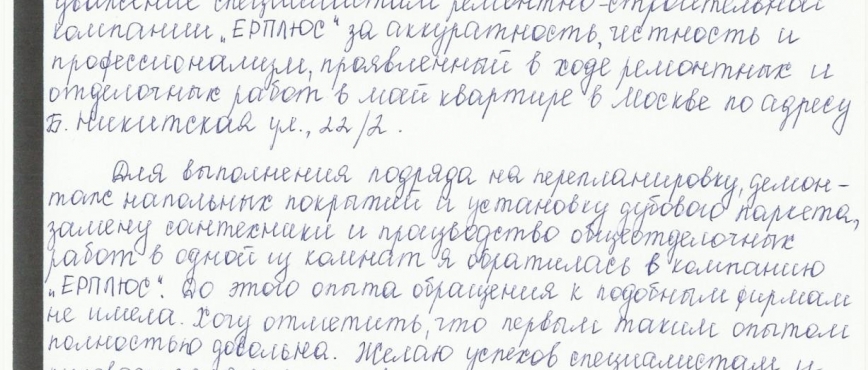 уважение специалистам ремонтно-строительной
компании „ЕРПЛЮС“ за аккуратность, честность и
профессионализм, проявленный в ходе ремонтных и
отделочных работ в май квартире в Москве по адресу
Б. Никитская ул., 22/2.
Для выполнения подряда на перепланировку, демон-
таж напольных покрытий и установку дубового паркета,
замену сантехники и производство общеотделочных
работ в одной из комнат я обратилась в компанию
„ЕРПЛЮС“. До этого опыта обращения к подобным фирмам
не имела. Хочу отметить, что первым таким опытом
полностью довольна. Желаю успехов специалистам и